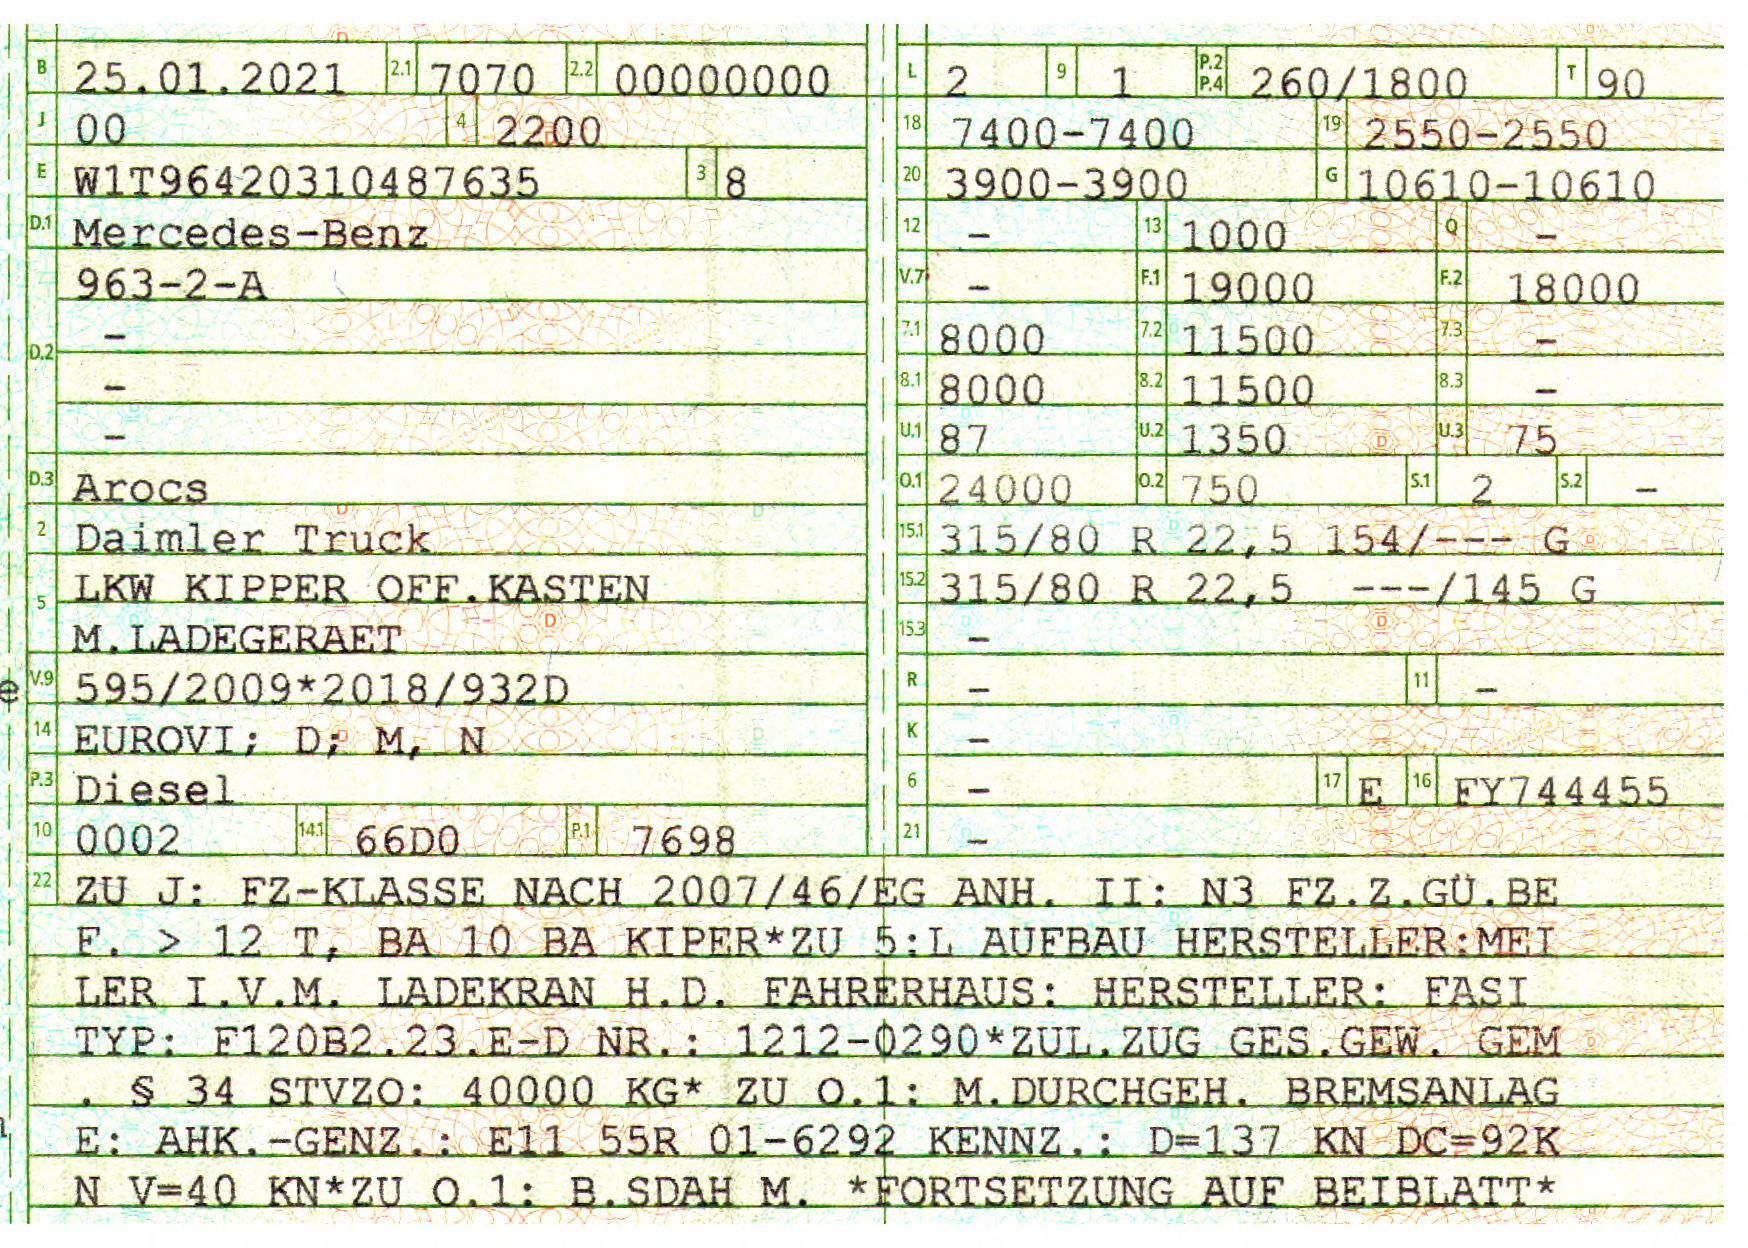 B 25.01.2021 2.1 7070 2.2 00000000
J 00 4 2200
E W1T96420310487635 3 8
D.1 Mercedes-Benz
963-2-A
–
D.2
–
–
D.3 Arocs
2 Daimler Truck
LKW KIPPER OFF.KASTEN
5
M.LADEGERAET
V.9 595/2009*2018/932D
14 EUROVI; D; M, N
P.3 Diesel
10 0002 14.1 66D0 P.1 7698
L 2 9 1 P.2 P.4 260/1800 T 90
18 7400-7400 19 2550-2550
20 3900-3900 G 10610-10610
12 – 13 1000 Q –
V.7 – F.1 19000 F.2 18000
7.1 8000 7.2 11500 7.3 –
8.1 8000 8.2 11500 8.3 –
U.1 87 U.2 1350 U.3 75
O.1 24000 O.2 750 S.1 2 S.2 –
15.1 315/80 R 22,5 154/--- G
15.2 315/80 R 22,5 ---/145 G
15.3 –
R – 11 –
K –
6 – 17 E 16 FY744455
21 –
22 ZU J: FZ-KLASSE NACH 2007/46/EG ANH. II: N3 FZ.Z.GÜ.BE
F. > 12 T, BA 10 BA KIPER*ZU 5:L AUFBAU HERSTELLER:MEI
LER I.V.M. LADEKRAN H.D. FAHRERHAUS: HERSTELLER: FASI
TYP: F120B2.23.E-D NR.: 1212-0290*ZUL.ZUG GES.GEW. GEM
. § 34 STVZO: 40000 KG* ZU O.1: M.DURCHGEH. BREMSANLAG
E: AHK.-GENZ.: E11 55R 01-6292 KENNZ.: D=137 KN DC=92K
N V=40 KN*ZU O.1: B.SDAH M. *FORTSETZUNG AUF BEIBLATT*